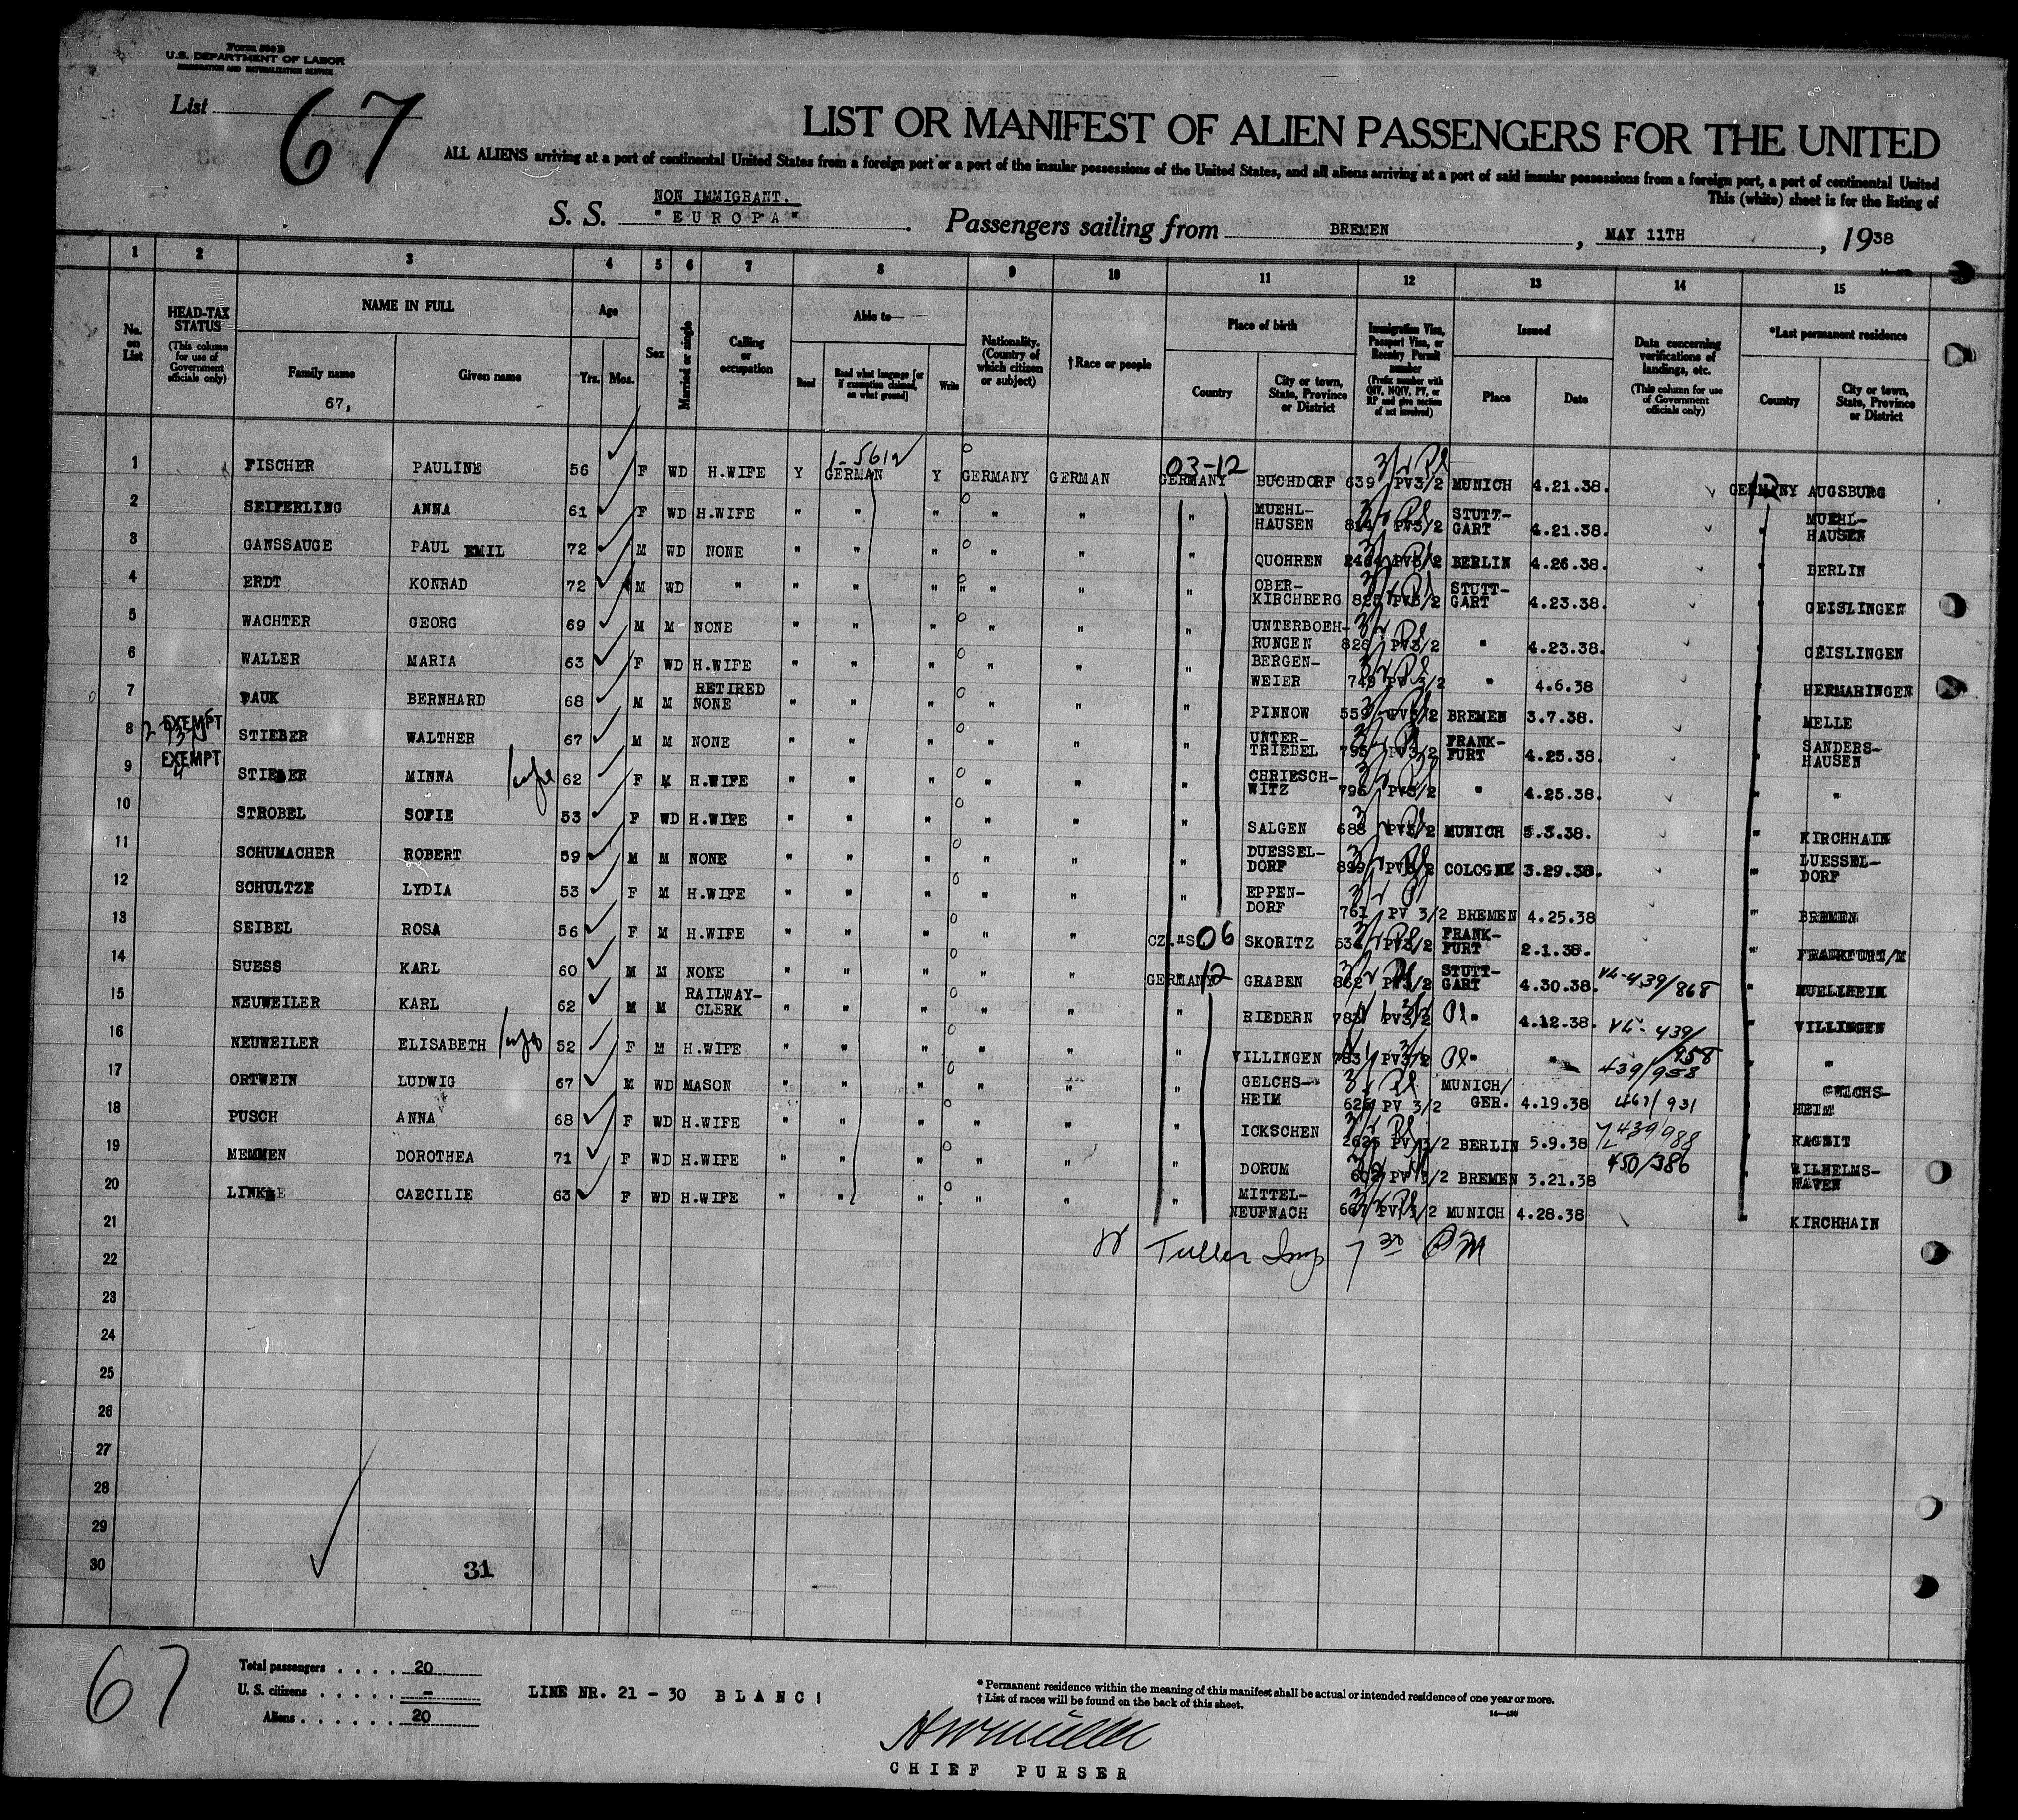 Form 500 B
U.S. DEPARTMENT OF LABOR
IMMIGRATION AND NATURALIZATION SERVICE
List 67
LIST OR MANIFEST OF ALIEN PASSENGERS FOR THE UNITED
ALL ALIENS arriving at a port of continental United States from a foreign port or a port of the insular possessions of the United States, and all aliens arriving at a port of said insular possessions from a foreign port, a port of continental United
This (white) sheet is for the listing of
NON IMMIGRANT.
S. S. "EUROPA". Passengers sailing from BREMEN, MAY 11TH, 1938
1 2 3 4 5 6 7 8 9 10 11 12 13 14 15
No. on List
HEAD-TAX STATUS (This column for use of Government officials only)
NAME IN FULL
Family name
67,
Given name
Age
Yrs. Mos.
Sex
Married or single
Calling or occupation
Able to—
Read
Read what language [or if exemption claimed, on what ground]
Write
Nationality. (Country of which citizen or subject)
†Race or people
Place of birth
Country
City or town, State, Province or District
Immigration Visa, Passport Visa, or Reentry Permit number (Prefix number with QIV, NQIV, PV, or RP and give section of act involved)
Issued
Place
Date
Data concerning verifications of landings, etc. (This column for use of Government officials only)
*Last permanent residence
Country
City or town, State, Province or District
1-5612
03-12
1 FISCHER PAULINE 56 F WD H.WIFE Y GERMAN Y GERMANY GERMAN GERMANY BUCHDORF 639 PV3/2 MUNICH 4.21.38. GERMANY AUGSBURG
2 SEIFERLING ANNA 61 F WD H.WIFE " " " " " " MUEHL-HAUSEN PV3/2 STUTT-GART 4.21.38. " MUEHL-HAUSEN
3 GANSSAUGE PAUL EMIL 72 M WD NONE " " " " " " QUOHREN PV3/2 BERLIN 4.26.38. " BERLIN
4 ERDT KONRAD 72 M WD " " " " " " " OBER-KIRCHBERG 825 PV3/2 STUTT-GART 4.23.38. " GEISLINGEN
5 WACHTER GEORG 69 M M NONE " " " " " " UNTERBOEH-RUNGEN 826 PV3/2 " 4.23.38. " GEISLINGEN
6 WALLER MARIA 63 F WD H.WIFE " " " " " " BERGEN-WEIER 749 PV 3/2 " 4.6.38 " HERMARINGEN
7 PAUK BERNHARD 68 M M RETIRED NONE " " " " " " PINNOW 559 PV3/2 BREMEN 3.7.38. " MELLE
8 EXEMPT STIEBER WALTHER 67 M M NONE " " " " " " UNTER-TRIEBEL 795 PV3/2 FRANK-FURT 4.25.38. " SANDERS-HAUSEN
9 EXEMPT STIEBER MINNA wife 62 F M H.WIFE " " " " " " CHRIESCH-WITZ 796 PV3/2 " 4.25.38. " "
10 STROBEL SOFIE 53 F WD H.WIFE " " " " " " SALGEN 688 PV3/2 MUNICH 5.3.38. " KIRCHHAIN
11 SCHUMACHER ROBERT 59 M M NONE " " " " " " DUESSEL-DORF 899 PV3/2 COLOGNE 3.29.38. " LUESSEL-DORF
12 SCHULTZE LYDIA 53 F M H.WIFE " " " " " " EPPEN-DORF 761 PV 3/2 BREMEN 4.25.38 " BREMEN
13 SEIBEL ROSA 56 F M H.WIFE " " " " " CZ.-S 06 SKORITZ PV3/2 FRANK-FURT 2.1.38. " FRANKFURT/M
14 SUESS KARL 60 M M NONE " " " " " GERMANY 12 GRABEN 862 PV3/2 STUTT-GART 4.30.38. VL-439/868 " MUELLHEIM
15 NEUWEILER KARL 62 M M RAILWAY-CLERK " " " " " " RIEDERN 783 PV3/2 " 4.12.38. VL-439/958 " VILLINGEN
16 NEUWEILER ELISABETH wife 52 F M H.WIFE " " " " " " VILLINGEN 783 PV3/2 " " 439/958 " "
17 ORTWEIN LUDWIG 67 M WD MASON " " " " " " GELCHS-HEIM 626 PV 3/2 MUNICH/GER. 4.19.38 467/931 GELCHS-HEIM
18 PUSCH ANNA 68 F WD H.WIFE " " " " " " ICKSCHEN 2625 PV 3/2 BERLIN 5.9.38 439988 " RAGNIT
19 MEMMEN DOROTHEA 71 F WD H.WIFE " " " " " " DORUM 602 PV 3/2 BREMEN 3.21.38 450/386 " WILHELMS-HAVEN
20 LINKE CAECILIE 63 F WD H.WIFE " " " " " " MITTEL-NEUFNACH 667 PV 3/2 MUNICH 4.28.38 " KIRCHHAIN
21
22 Tuller Insp 7 30 PM
23
24
25
26
27
28
29
30
31
67
Total passengers . . . . 20
U. S. citizens . . . . . -
Aliens . . . . . . 20
LINE NR. 21 - 30 BLANC!
* Permanent residence within the meaning of this manifest shall be actual or intended residence of one year or more.
† List of races will be found on the back of this sheet.
14-430
CHIEF PURSER